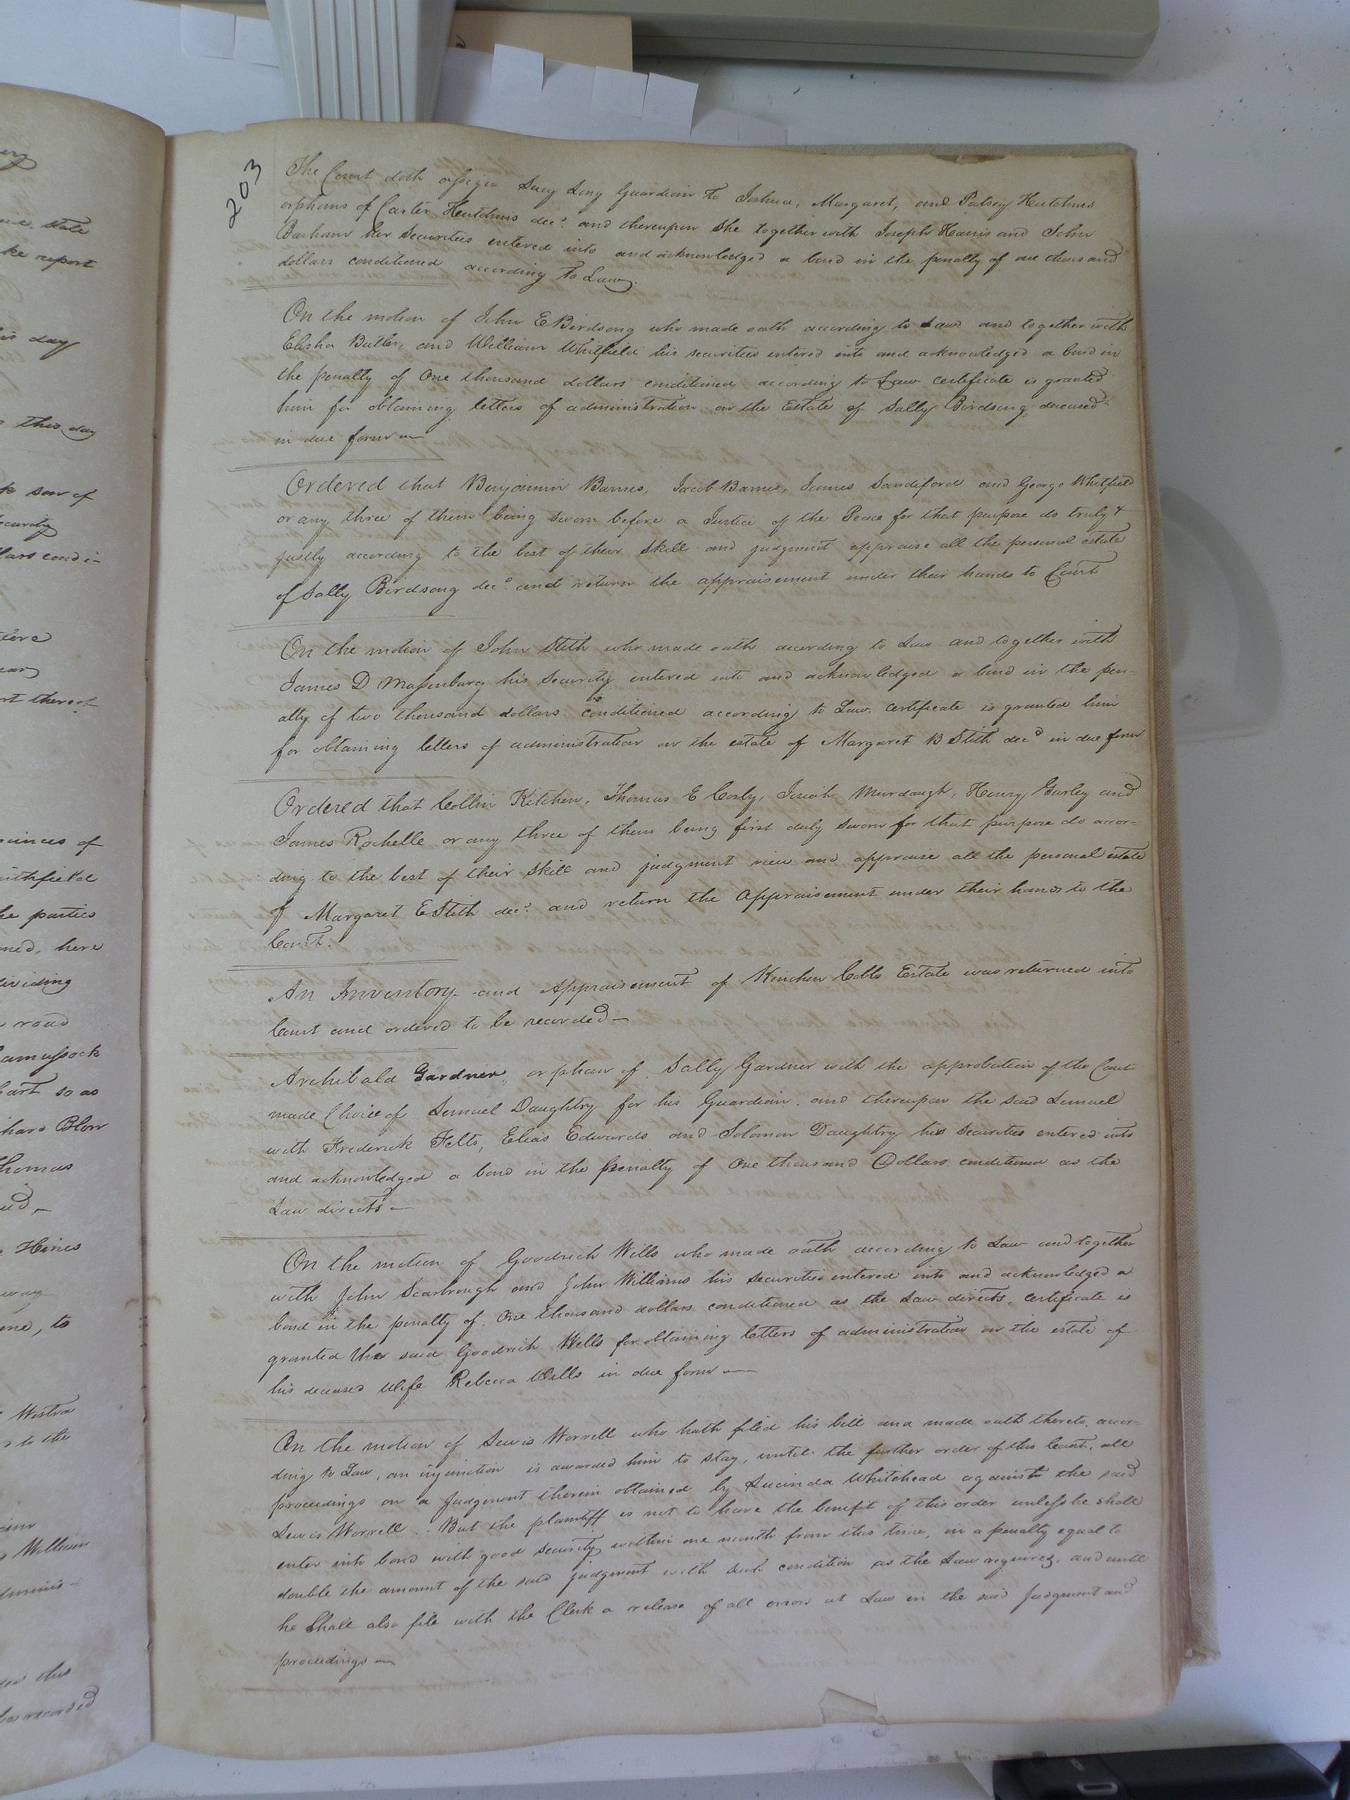 203
The Court doth assign Lucy Long Guardian to Joshua, Margaret, and Patsey Hutchins
orphans of Carter Hutchins decd. and thereupon she together with Joseph Harris and John
Barham her Securities entered into and acknowledged a bond in the penalty of one thousand
dollars conditioned according to Law.
On the motion of John E Birdsong who made oath according to Law and together with
Elisha Butler, and William Whitfield his securities entered into and acknowledged a bond in
the penalty of One thousand dollars conditioned according to Law certificate is granted
him for obtaining letters of administration on the Estate of Sally Birdsong deceased
in due form
Ordered that Benjamin Barnes, Jacob Barnes, James Sandeford and George Whitfield
or any three of them being sworn before a Justice of the Peace for that purpose do truly &
justly according to the best of their Skill and judgment appraise all the personal estate
of Sally Birdsong decd and return the appraisement under their hands to Court
On the motion of John Stith who made oath according to Law and together with
James D Massenburg his Security entered into and acknowledged a bond in the pen-
alty of two thousand dollars conditioned according to Law. certificate is granted him
for obtaining letters of administration on the estate of Margaret B Stith decd in due form
Ordered that Collin Kitchen, Thomas E Cosby, Josiah Murdaugh, Henry Gurley and
James Rochelle or any three of them being first duly sworn for that purpose do accor-
ding to the best of their Skill and judgment view and appraise all the personal estate
of Margaret E Stith decd. and return the Appraisement under their hands to the
Court.
An Inventory and Appraisement of Kinchen Cobbs Estate was returned into
Court and ordered to be recorded
Archibald Gardner, orphan of Sally Gardner with the approbation of the Court
made Choice of Lemuel Daughtry for his Guardian. and thereupon the said Lemuel
with Frederick Felts, Elias Edwards and Solomon Daughtry his securities entered into
and acknowledged a bond in the penalty of One thousand Dollars conditioned as the
Law directs
On the motion of Goodrich Wills who made oath according to Law and together
with John Scarbrough and John Williams his Securities entered into and acknowledged a
bond in the penalty of One thousand dollars conditioned as the Law directs, certificate is
granted the said Goodrich Wills for obtaining letters of administration on the estate of
his deceased Wife Rebecca Wills in due form
On the motion of Lewis Worrell who hath filed his bill and made oath thereto accor-
ding to Law, an injunction is awarded him to stay, until the further order of this Court, all
proceedings on a Judgment therein obtained by Lucinda Whitehead against the said
Lewis Worrell. But the plaintiff is not to have the benefit of this order unless he shall
enter into bond with good security within one month from this time, in a penalty equal to
double the amount of the said judgment with such condition as the Law requires. and until
he Shall also file with the Clerk a release of all errors at Law in the said Judgment and
proceedings